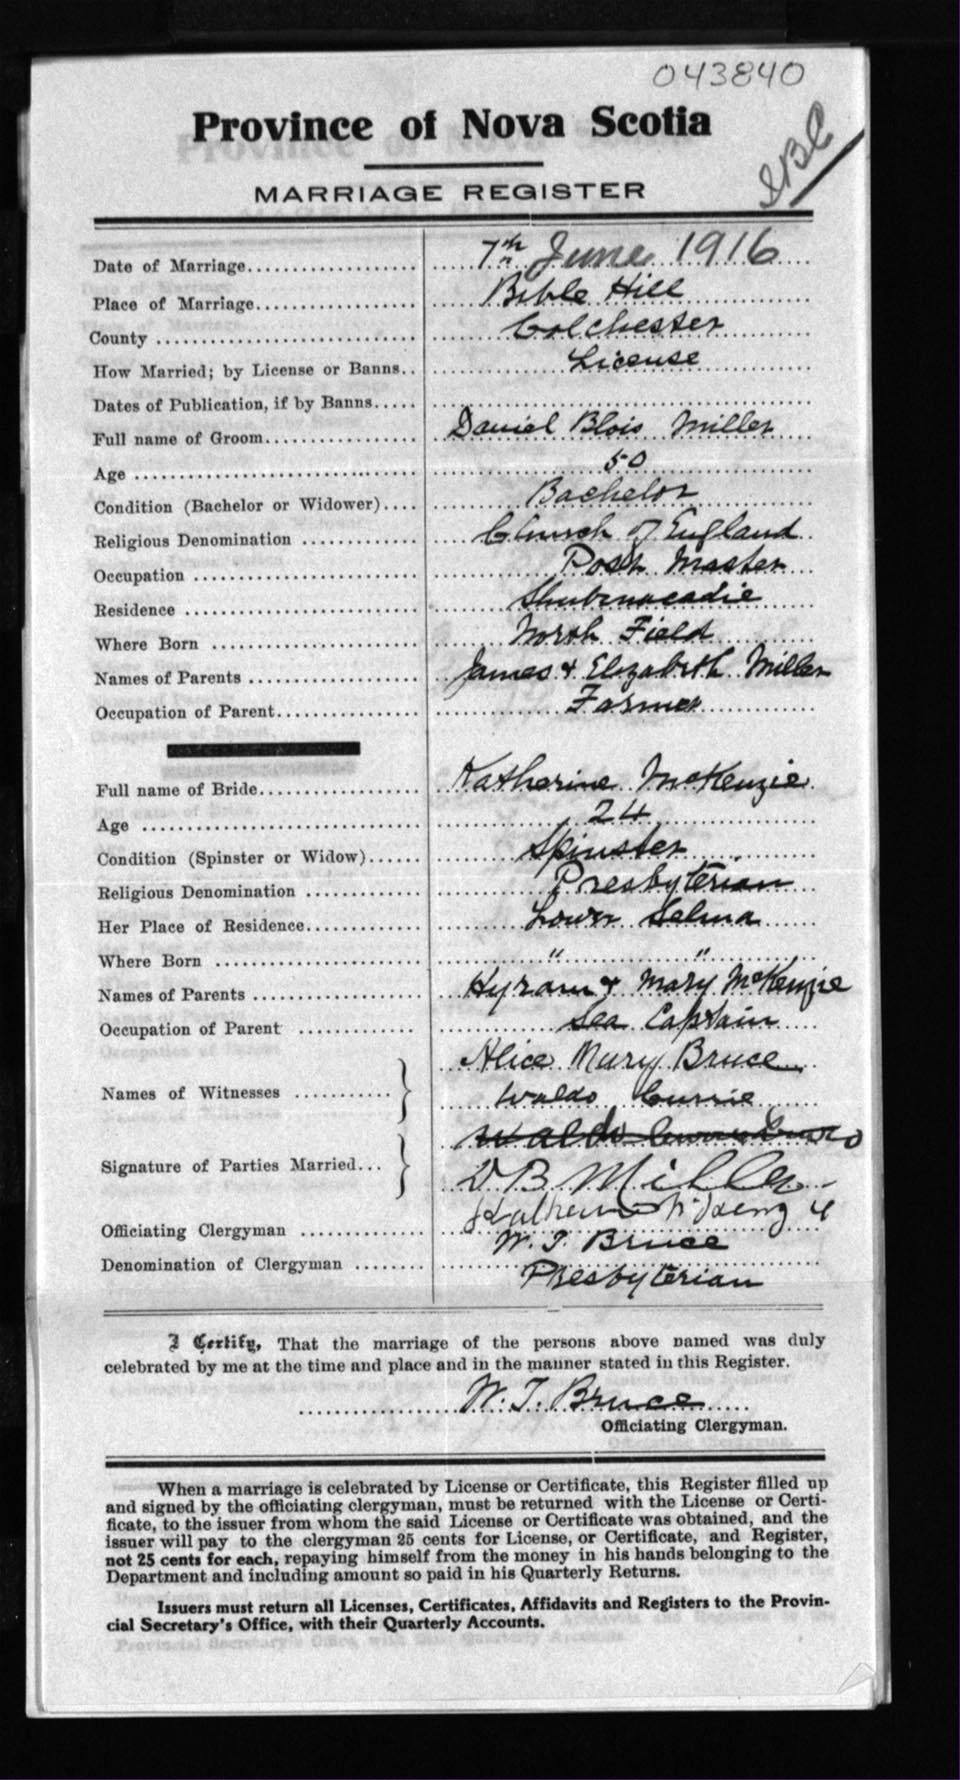 043840
Province of Nova Scotia
MARRIAGE REGISTER
Date of Marriage 7th June 1916
Place of Marriage Bible Hill
County Colchester
How Married; by License or Banns License
Dates of Publication, if by Banns
Full name of Groom Daniel Blois Miller
Age 50
Condition (Bachelor or Widower) Bachelor
Religious Denomination Church of England
Occupation Post Master
Residence Shubenacadie
Where Born North Field
Names of Parents James & Elizabeth Miller
Occupation of Parent Farmer
Full name of Bride Katherine McKenzie
Age 24
Condition (Spinster or Widow) Spinster
Religious Denomination Presbyterian
Her Place of Residence Lower Selma
Where Born " "
Names of Parents Hyram & Mary McKenzie
Occupation of Parent Sea Captain
Alice Mary Bruce
Names of Witnesses
Waldo Currie
Waldo
Signature of Parties Married D B Miller
Officiating Clergyman W. T. Bruce
Denomination of Clergyman Presbyterian
I Certify, That the marriage of the persons above named was duly
celebrated by me at the time and place and in the manner stated in this Register.
W. T. Bruce
Officiating Clergyman.
When a marriage is celebrated by License or Certificate, this Register filled up
and signed by the officiating clergyman, must be returned with the License or Certi-
ficate, to the issuer from whom the said License or Certificate was obtained, and the
issuer will pay to the clergyman 25 cents for License, or Certificate, and Register,
not 25 cents for each, repaying himself from the money in his hands belonging to the
Department and including amount so paid in his Quarterly Returns.
Issuers must return all Licenses, Certificates, Affidavits and Registers to the Provin-
cial Secretary's Office, with their Quarterly Accounts.